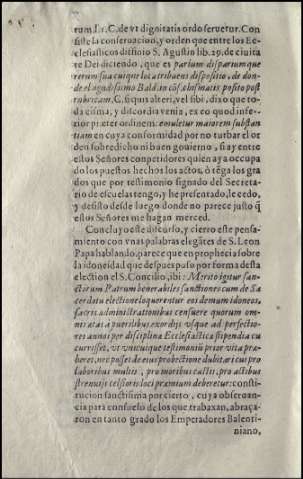 rum. I. r. C. de vt dignitatis ordo seruetur. Con
siste la conseruacion, y orden que entre los Ec-
clesiasticos difinio S. Agustin lib. 19. de ciuita
te Dei diciendo, que es parium dispariumque
rerum sua cuique loca tribuens dispositio, de don-
de el agudissimo Bald. in posito post
rubricam, C. si quis alteri, vel sibi, dixo que to-
da cisma, y discordia venia, ex eo quod infe-
rior præter ordinem euoluitur maiorem substan
tiam en cuya conformidad por no turbar el or
den sobredicho ni buen gouierno, si ay entre
estos Señores competidores quien aya ocupa
do los puestos hechos los actos, ò tẽga los gra
dos que por testimonio signado del Secreta-
rio de escuelas tengo y he presentado, le cedo,
y desisto desde luego donde no parece justo q̃
estos Señores me hagan merced.
Concluyo este discurso, y cierro este pensa-
miento con vnas palabras elegãtes de S. Leon
Papa hablando, parece que en prophecia sobre
la idoneidad que despues puso por forma desta
election el S. Concilio, ibi: Merito igitur san-
ctorum Patrum benerabiles sanctiones cum de Sa
cerdotu electione loquerentur eos demum idoneos,
sacris administrationibus censuere quorum om-
nis ætas a puerilibus exordijs vsque ad perfectio-
res annos per disciplina Ecclesiastica stipendia cu
currisset, vt vnicuique testimoniũ prior vita præ-
beret, nec posset de eius probectione dubitari cui pro
laboribus multis, pro moribus castis, pro actibus
strenuis celsioris loci præmium deberetur: consti-
tucion sanctissima por cierto, cuya obseruan-
cia para consuelo de los que trabaxan, abraça-
ron en tanto grado los Emperadores Balenti-
niano,